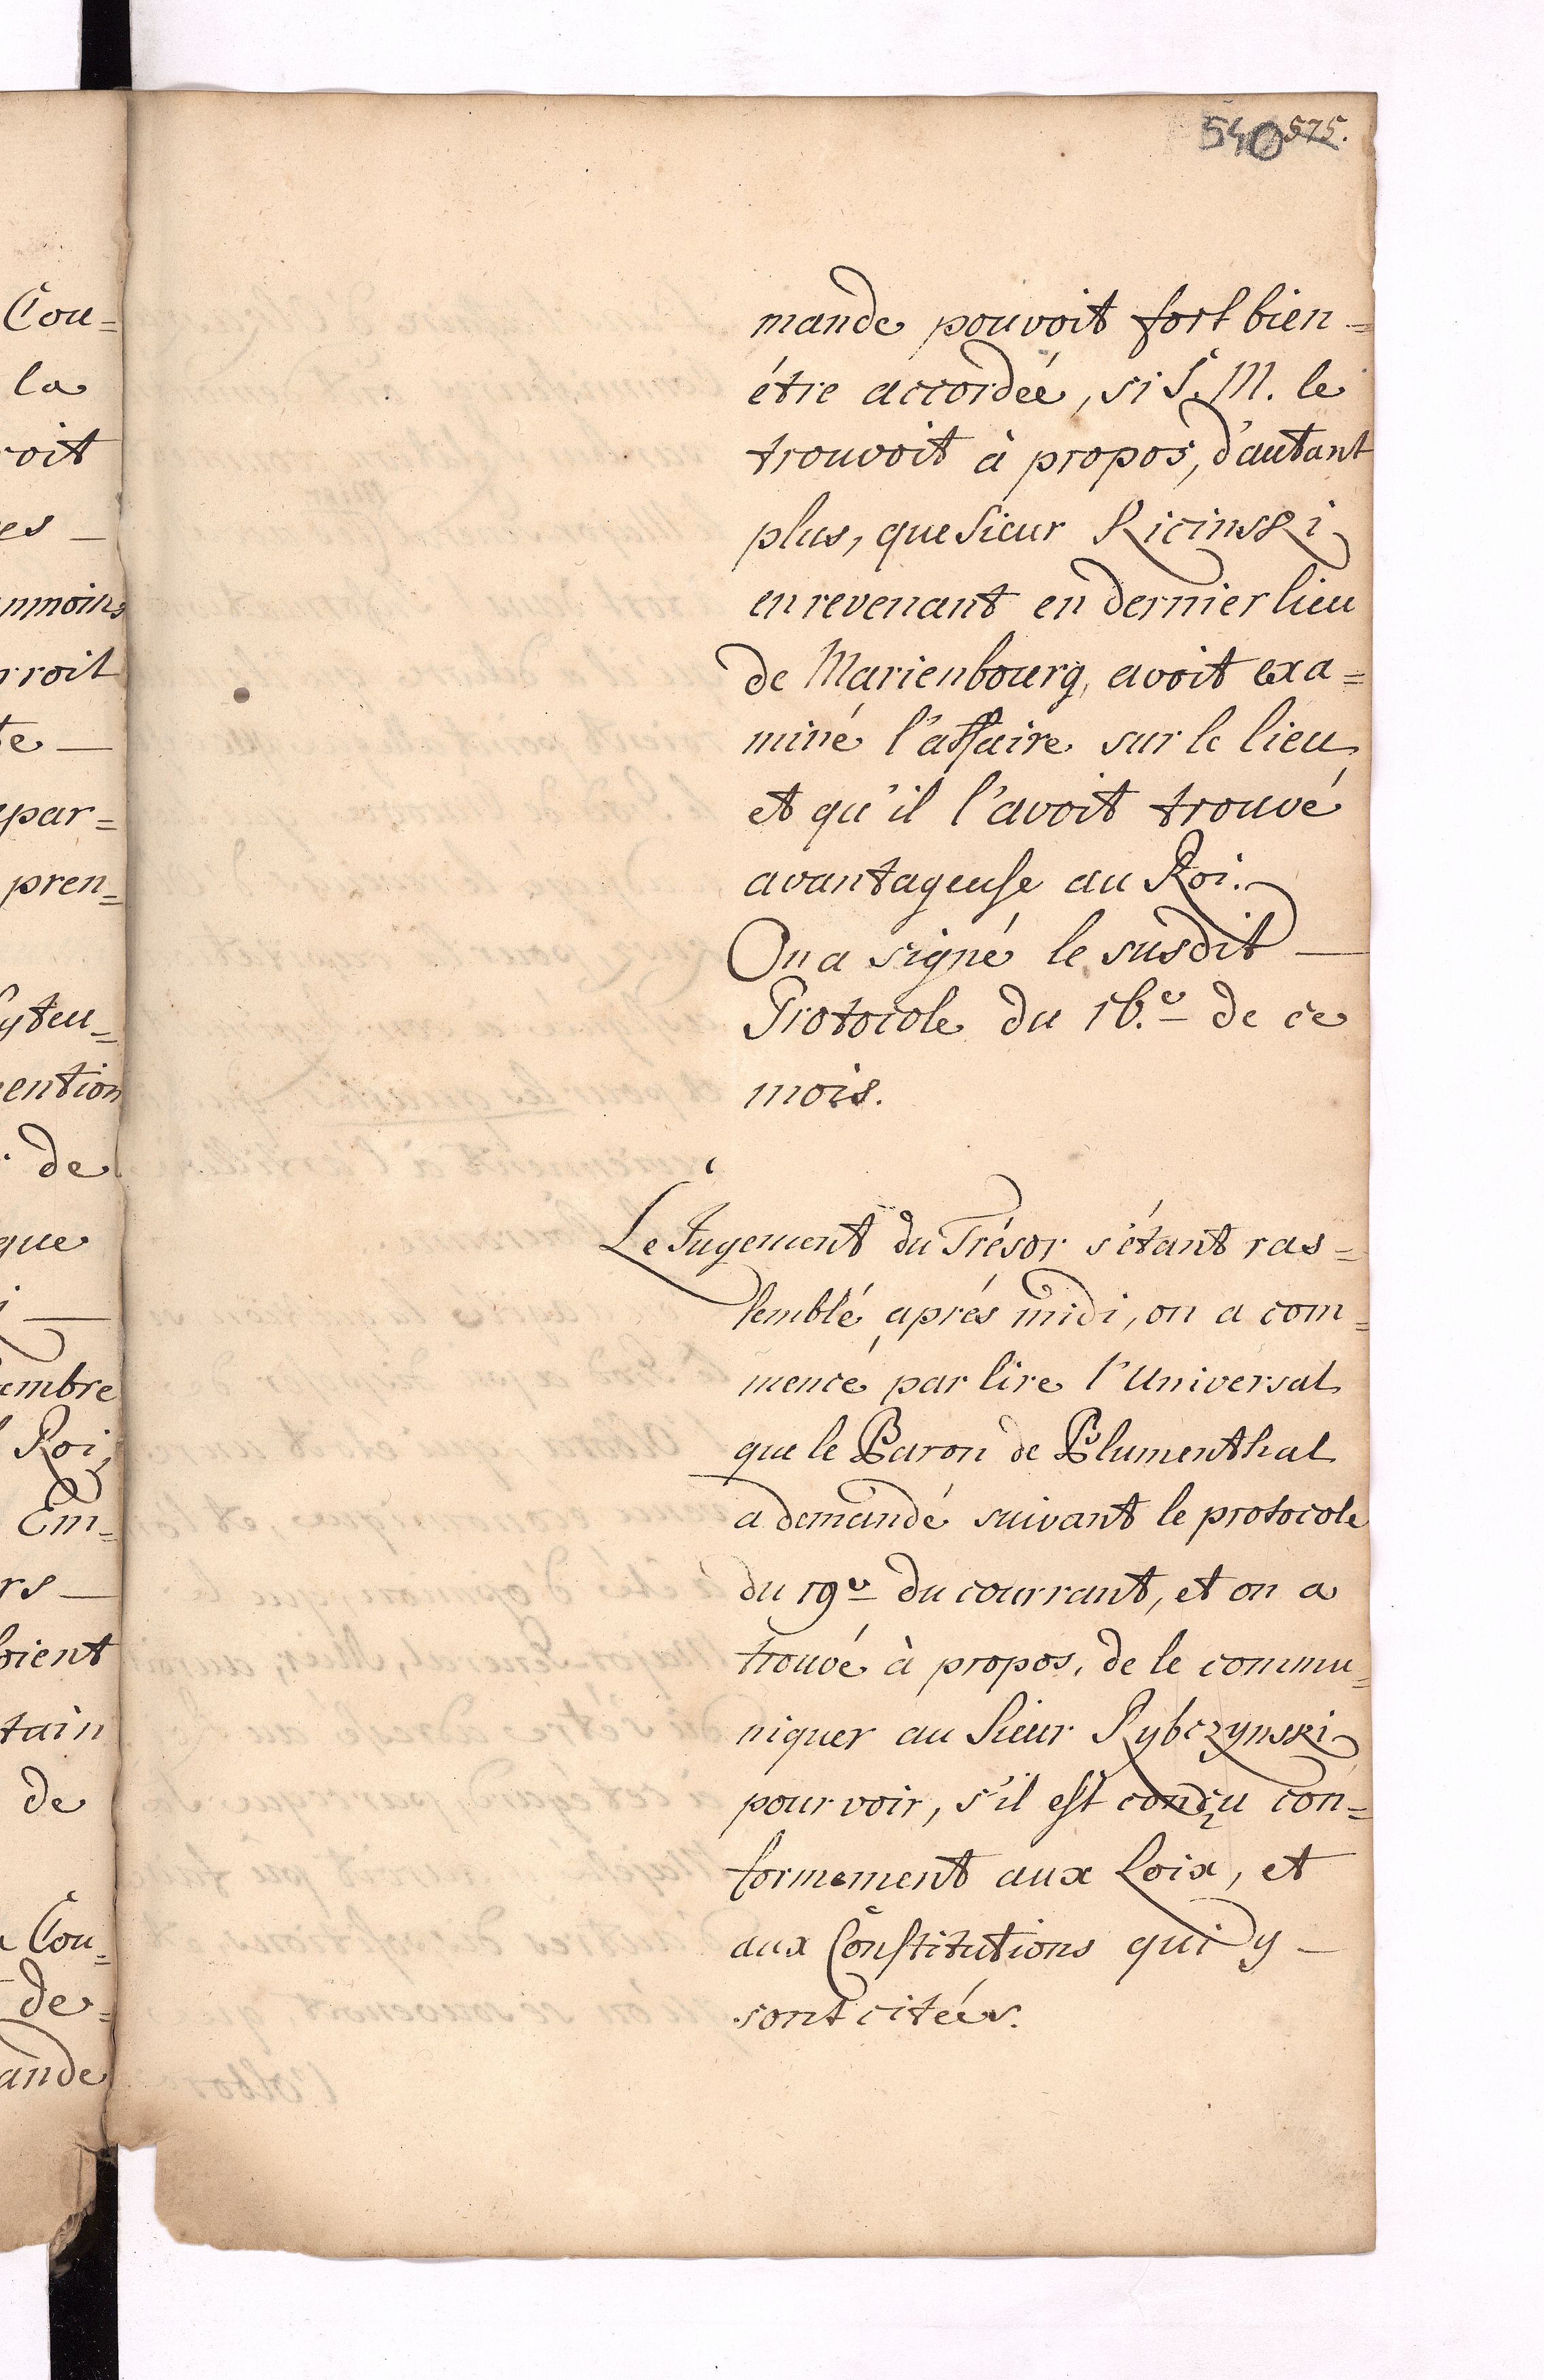 540 575.
Cou=
la
roit
es —
nmoins
rroit
te —
par=
pren=
yteu=
ention
de
que
embre
Roi,
Em=
rs —
oient
tain
de
Cou=
de=
ande
mande pouvoit fort bien =
étre accordée, si S. M. le
trouvoit à propos, d'autant
plus, que Sieur Ricinski
en revenant en dernier lieu
de Marienbourg, avoit exa=
miné l'affaire sur le lieu
et qu'il l'avoit trouvé
avantageuse au Roi.
On a signé le susdit —
Protocole du 16.e de ce
mois.
Le Jugement du Trésor s'étant ras=
semblé aprés midi, on a com=
mencé par lire l'Universal
que le Baron de Blumenthal
a demandé suivant le protocole
du 19e du courrant, et on a
trouvé à propos, de le commu=
niquer au Sieur Rybczynski
pour voir, s'il est conçu con=
formement aux Loix, et
aux Constitutions qui y —
sont citées.